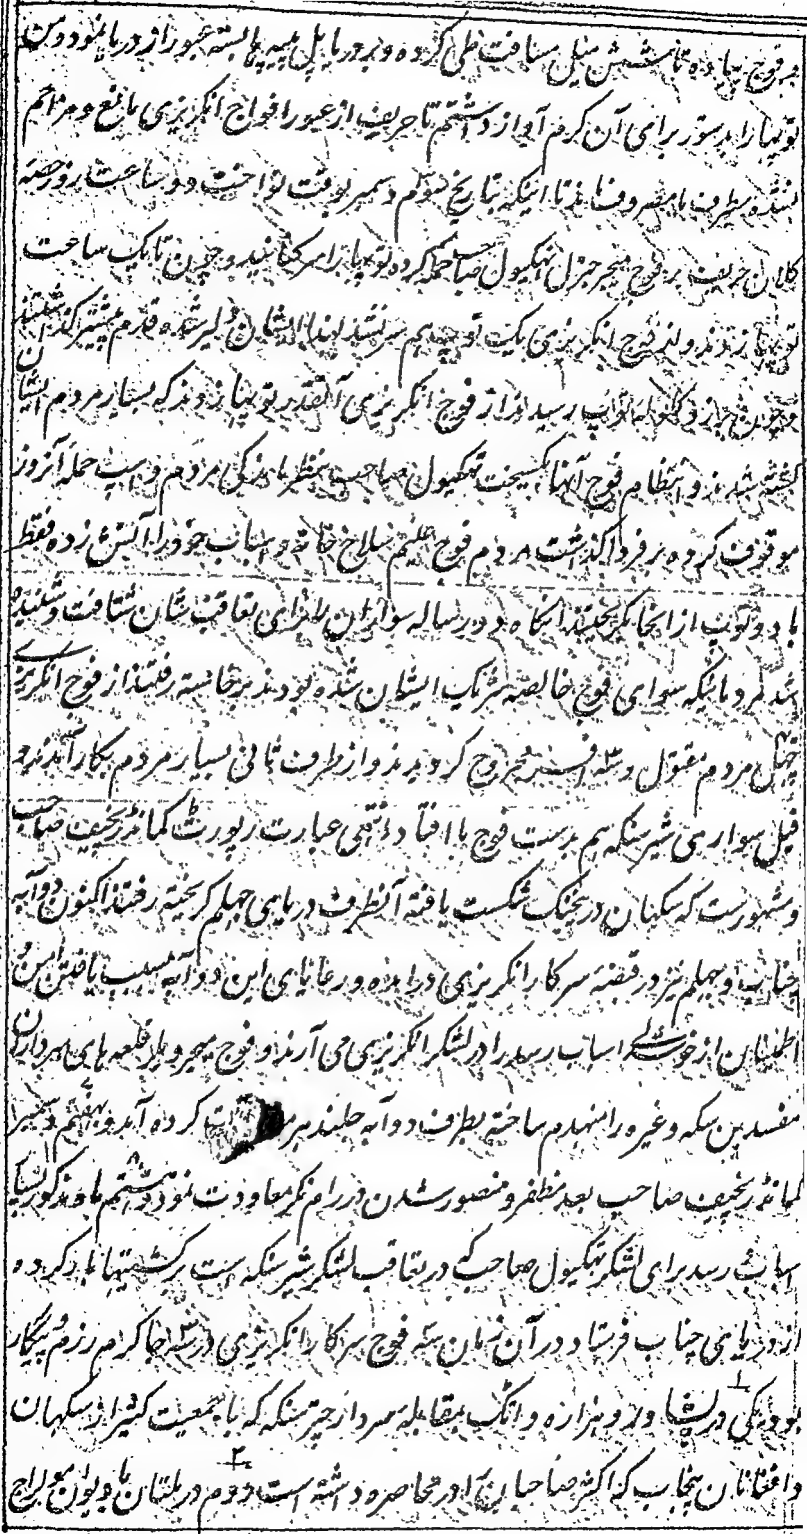 و فوج پیاده تا شش میل مسافت طی کرده و بر دریا پل پیپه‌ها بسته عبور از دریا نمود و من
توپها را بدستور برای آن کرم آواز داشتم تا حریف از عبور افواج انگریزی مانع و مزاحم
نشده بطرف ما مصروف ماند تا اینکه بتاریخ سوم دسمبر بوقت نواخت دو ساعت روز حصه
کلان حریف بر فوج میجر جنرل تهکیول صاحب حمله کرده توپها را سر کنانید و چون تا یک ساعت
توپها زدند و از فوج انگریزی یک توپ هم سر نشد لهذا ایشان دلیر شده قدم پیشتر گذاشتند
و چون بر زد گلوله توپ رسیدند از فوج انگریزی آنقدر توپها زدند که بسیار مردم ایشان
کشته شدند و انتظام فوج آنها گسیخت تهکیول صاحب بنظر ماندگی مردم و اسپ حمله آنروز
موقوف کرده بر فردا گذاشت مردم فوج غنیم سلاح خانه و اسباب خود را آتش زده فقط
با دو توپ از انجا گریختند آنگاه دو رساله سواران برای تعاقب شان شتافت و شنیده
شد مردمانیکه سوای فوج خالصه شریک ایشان شده بودند برخاسته رفتند از فوج انگریزی
چهل مردم مقتول و سه افسر مجروح گردیدند و از طرف ثانی بسیار مردم بکار آمدند و
فیل سواری شیر سنگه هم بدست فوج ما افتاد انتهی عبارت رپورٹ کمانڈر نچیف صاحب
و مشهور ست که سکهان در جنگ شکست یافته آنطرف دریای جهلم گریخته رفتند اکنون دوآبه
چناب و جهلم نیز در قبضه سرکار انگریزی درآمده و رعایای این دوآبه بسبب یافتن امن و
اطمینان از خوشدلی اسباب رسد را در لشکر انگریزی می آرند و فوج میجر ویلر قلعه های سرداران
مفسدین سکه و غیره را منهدم ساخته بطرف دوآبه جلندهر کرده آمد و بهفتم دسمبر
کمانڈر نچیف صاحب بعد مظفر و منصور شدن در رام نگر معاودت نمود و هشتم ماه مذکور
اسباب رسد برای لشکر تهکیول صاحب که در تعاقب لشکر شیر سنگه است بر کشتیها بار کرده
از دریای چناب فرستاد در آن زمان سه فوج سرکار انگریزی در سه جا گرم رزم و پیکار
بود یکی در پشاور و هزاره و اٹک بمقابله سردار چتر سنگه که با جمعیت کثیر از سکهان
و افغانان پنجاب که اکثر صاحبان را در محاصره داشته است دوم در ملتان با دیوان مولراج